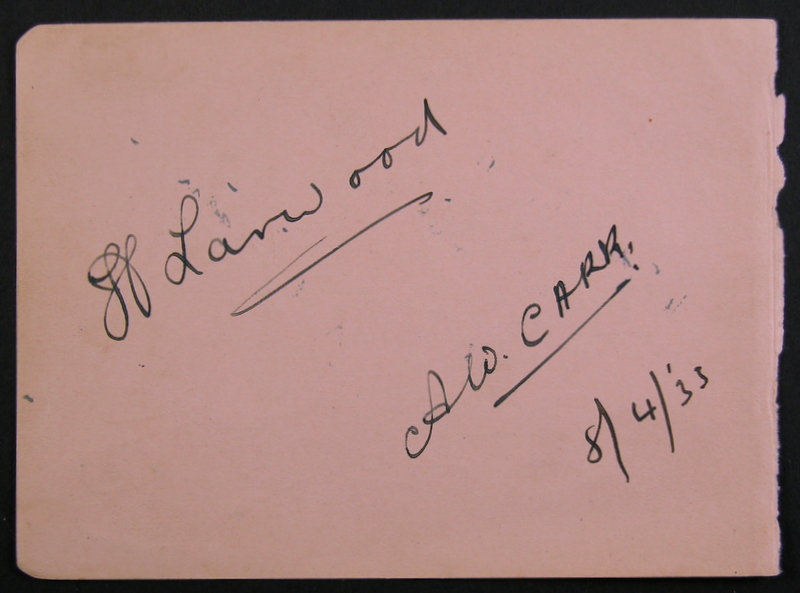 H Larwood
A.W. CARR.
8/4/'33